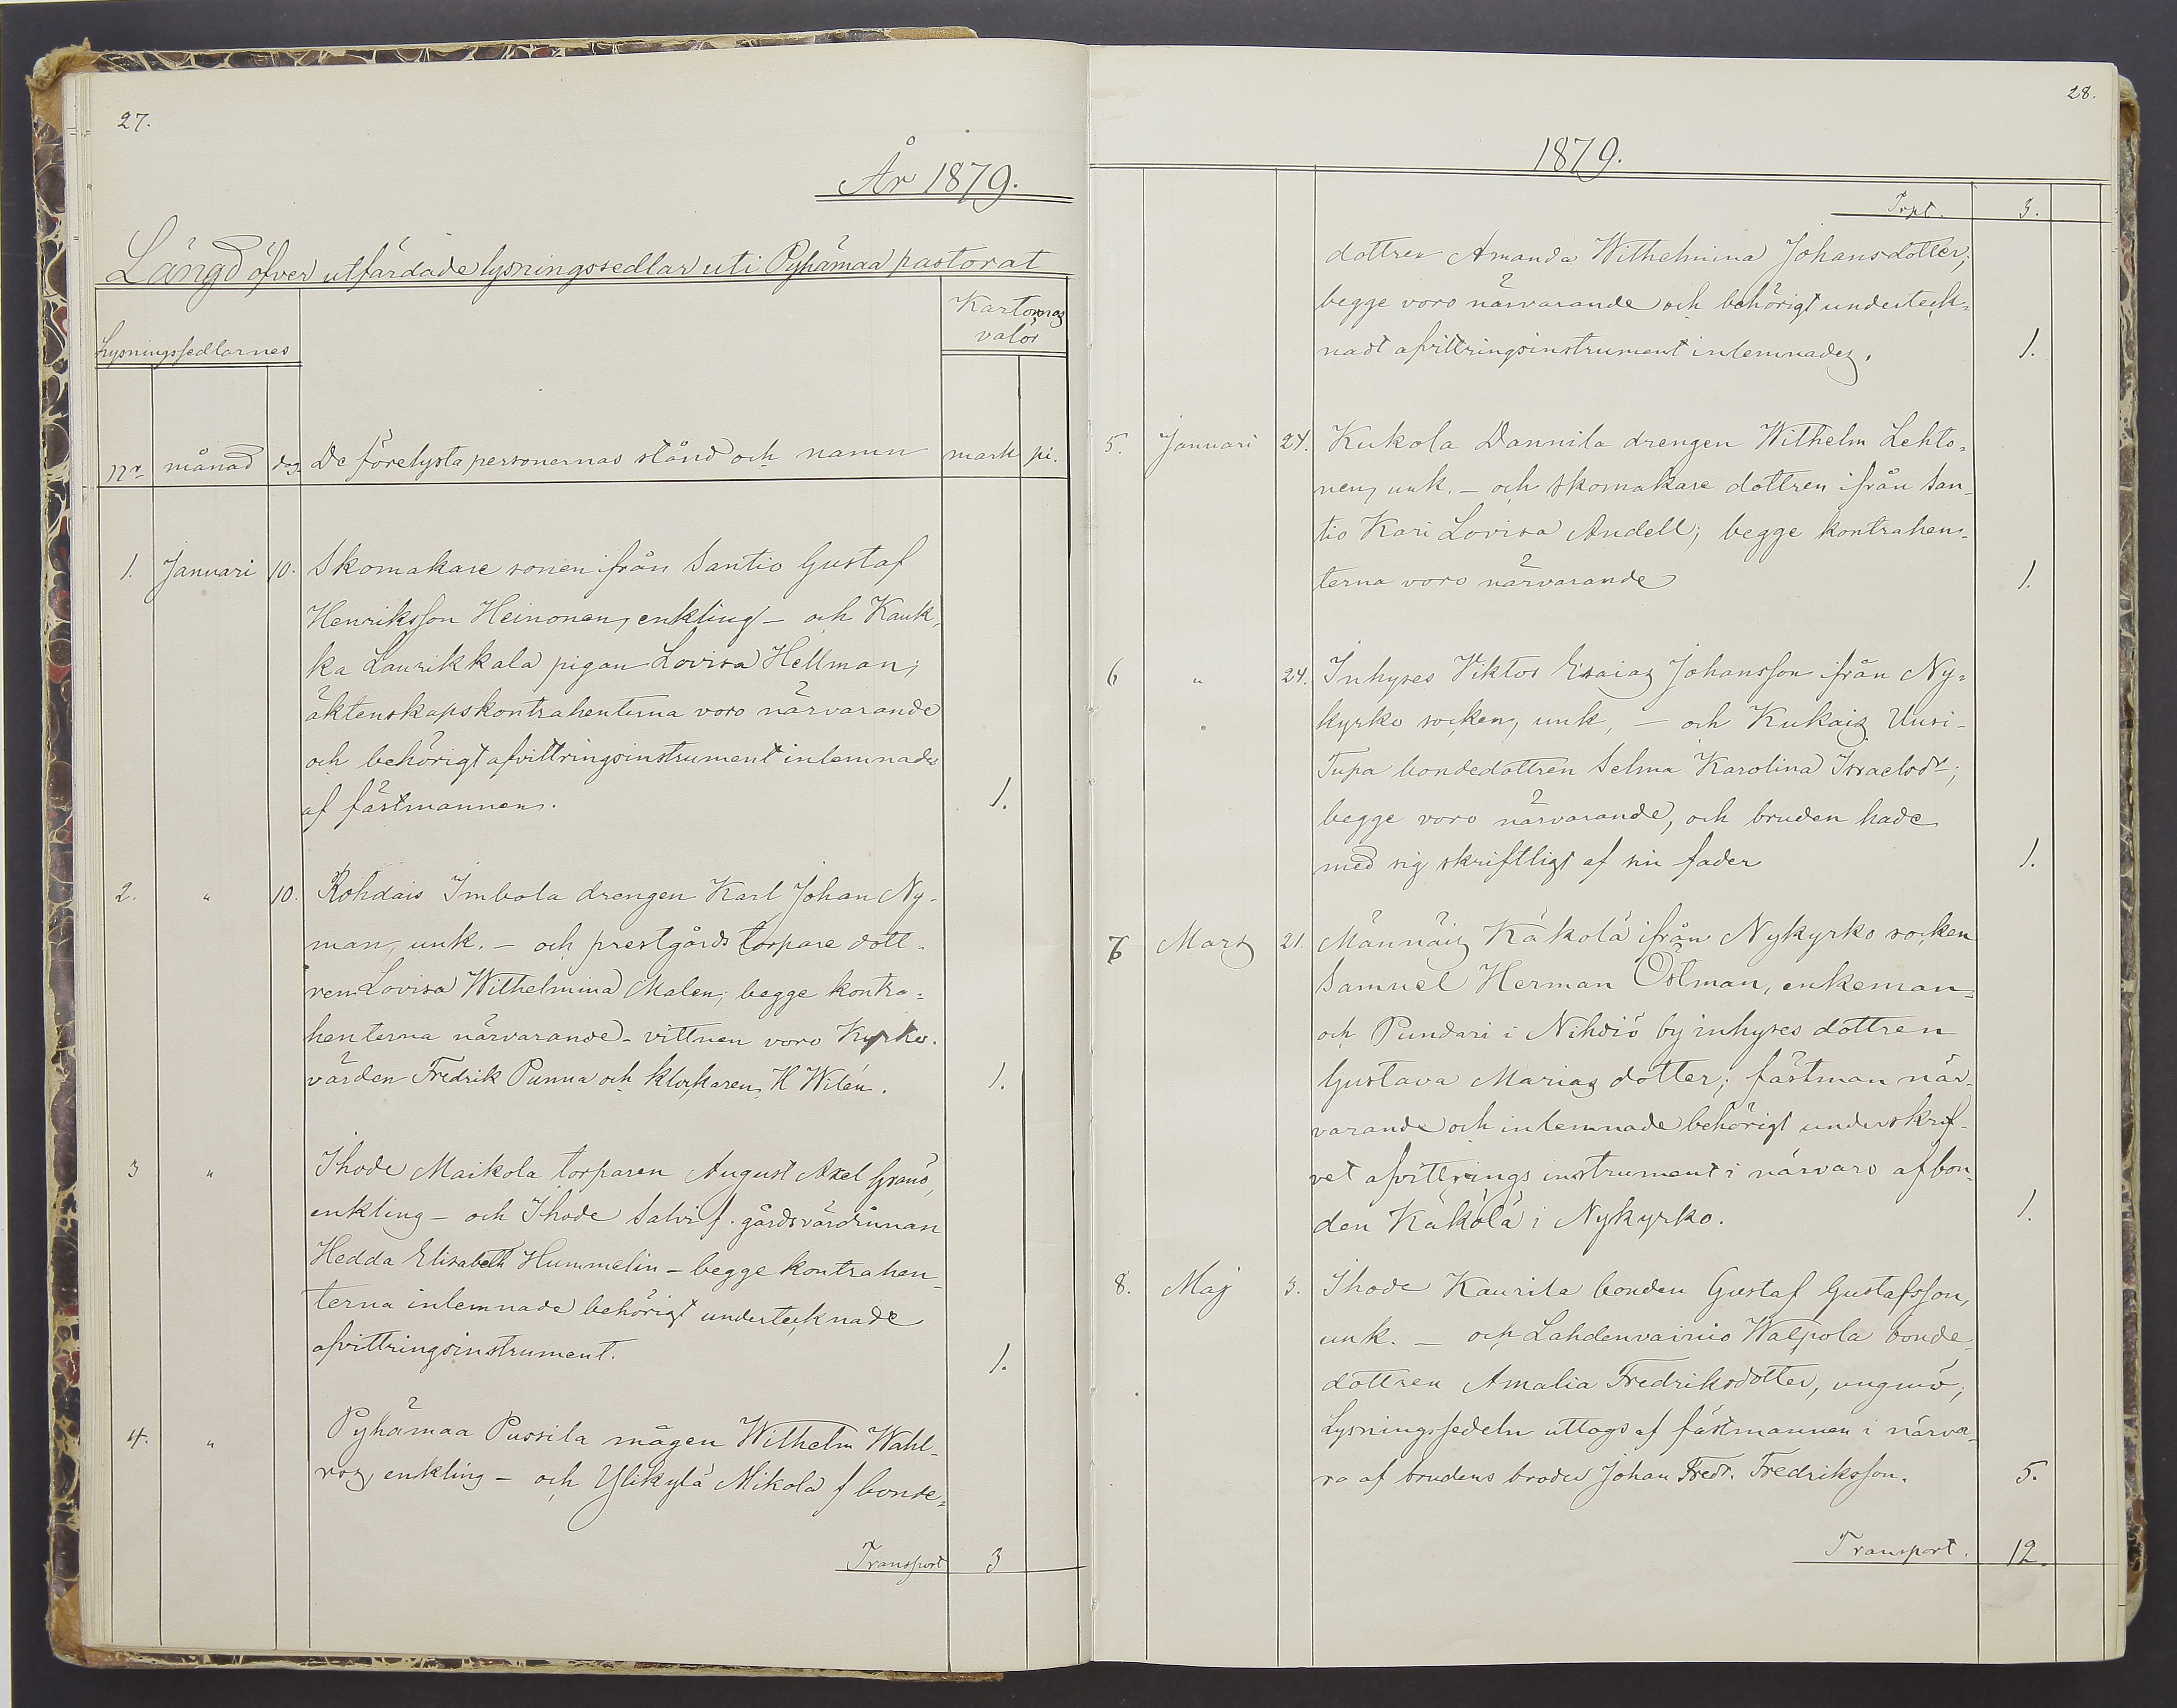 27.
År 1879.
Längd öfver utfärdade lysningssedlar uti Pyhämaa pastorat
Lysningssedlarnes
Kartornas
valör
nr månad dag De förelysta personernas stånd och namn mark pi.
1. Januari 10. Skomakare sonen ifrån Santio Gustaf
Henriksson Heinonen, enkling – och Kauk,
ka Laurikkala pigan Lovisa Hellman;
äktenskapskontrahenterna voro närvarande
och behörigt afvittringsinstrument inlemnades
af fästmannen. 1.
2. " 10. Rohdais Imbola drengen Karl Johan Ny-
man, unk. – och prestgårds torpare dott-
ren Lovisa Wilhelmina Malen; begge kontra=
henterna närvarande – vittnen voro Kyrko-
värden Fredrik Punna och klockaren K Wilén. 1.
3 " Ihode Maikola torparen August Axel Granö,
enkling – och Ihode Salvi f. gårdsvärdinnan
Hedda Elisabeth Hummelin – begge kontrahen-
terna inlemnade behörigt undertecknade
afvittringsinstrument. 1.
4. " Pyhämaa Pussila mågen Wilhelm Wahl-
ros, enkling – och Ylikylä Mikola f bonde=
Transport 3
28.
1879.
Trpt. 3.
dottren Amanda Wilhelmina Johansdotter;
begge voro närvarande och behörigt underteck=
nadt afvittringsinstrument inlemnades. 1.
5. Januari 24. Kukola Dannila drengen Wilhelm Lehto=
nen, unk. – och skomakare dottren ifrån San-
tio Kari Lovisa Andell; begge kontrahen-
terna voro närvarande 1.
6 " 24. Inhyses Viktor Esaias Johansson ifrån Ny=
kyrko socken, unk, – och Kukais Uusi-
Tupa bondedottren Selma Karolina Israelsdr;
begge voro närvarande, och bruden hade
med sig skriftligt af sin fader 1.
7 Mars 21. Männäis Käkölä ifrån Nykyrko socken
Samuel Herman Östman, enkeman=
och Pundari i Nihdiö by inhyses dottren
Gustava Marias dotter; fästman när-
varande och inlemnade behörigt underskrif-
vet afvittrings instrument i närvaro af bon-
den Käkölä i Nykyrko. 1.
8. Maj 3. Ihode Kaurila bonden Gustaf Gustafsson,
unk. – och Lahdenvainio Walpola bonde-
dottren Amalia Fredriksdotter, ungmö;
Lysningssedeln uttogs af fästmannen i närva-
ro af brudens broder Johan Fredr. Fredriksson. 5.
Transport. 12.